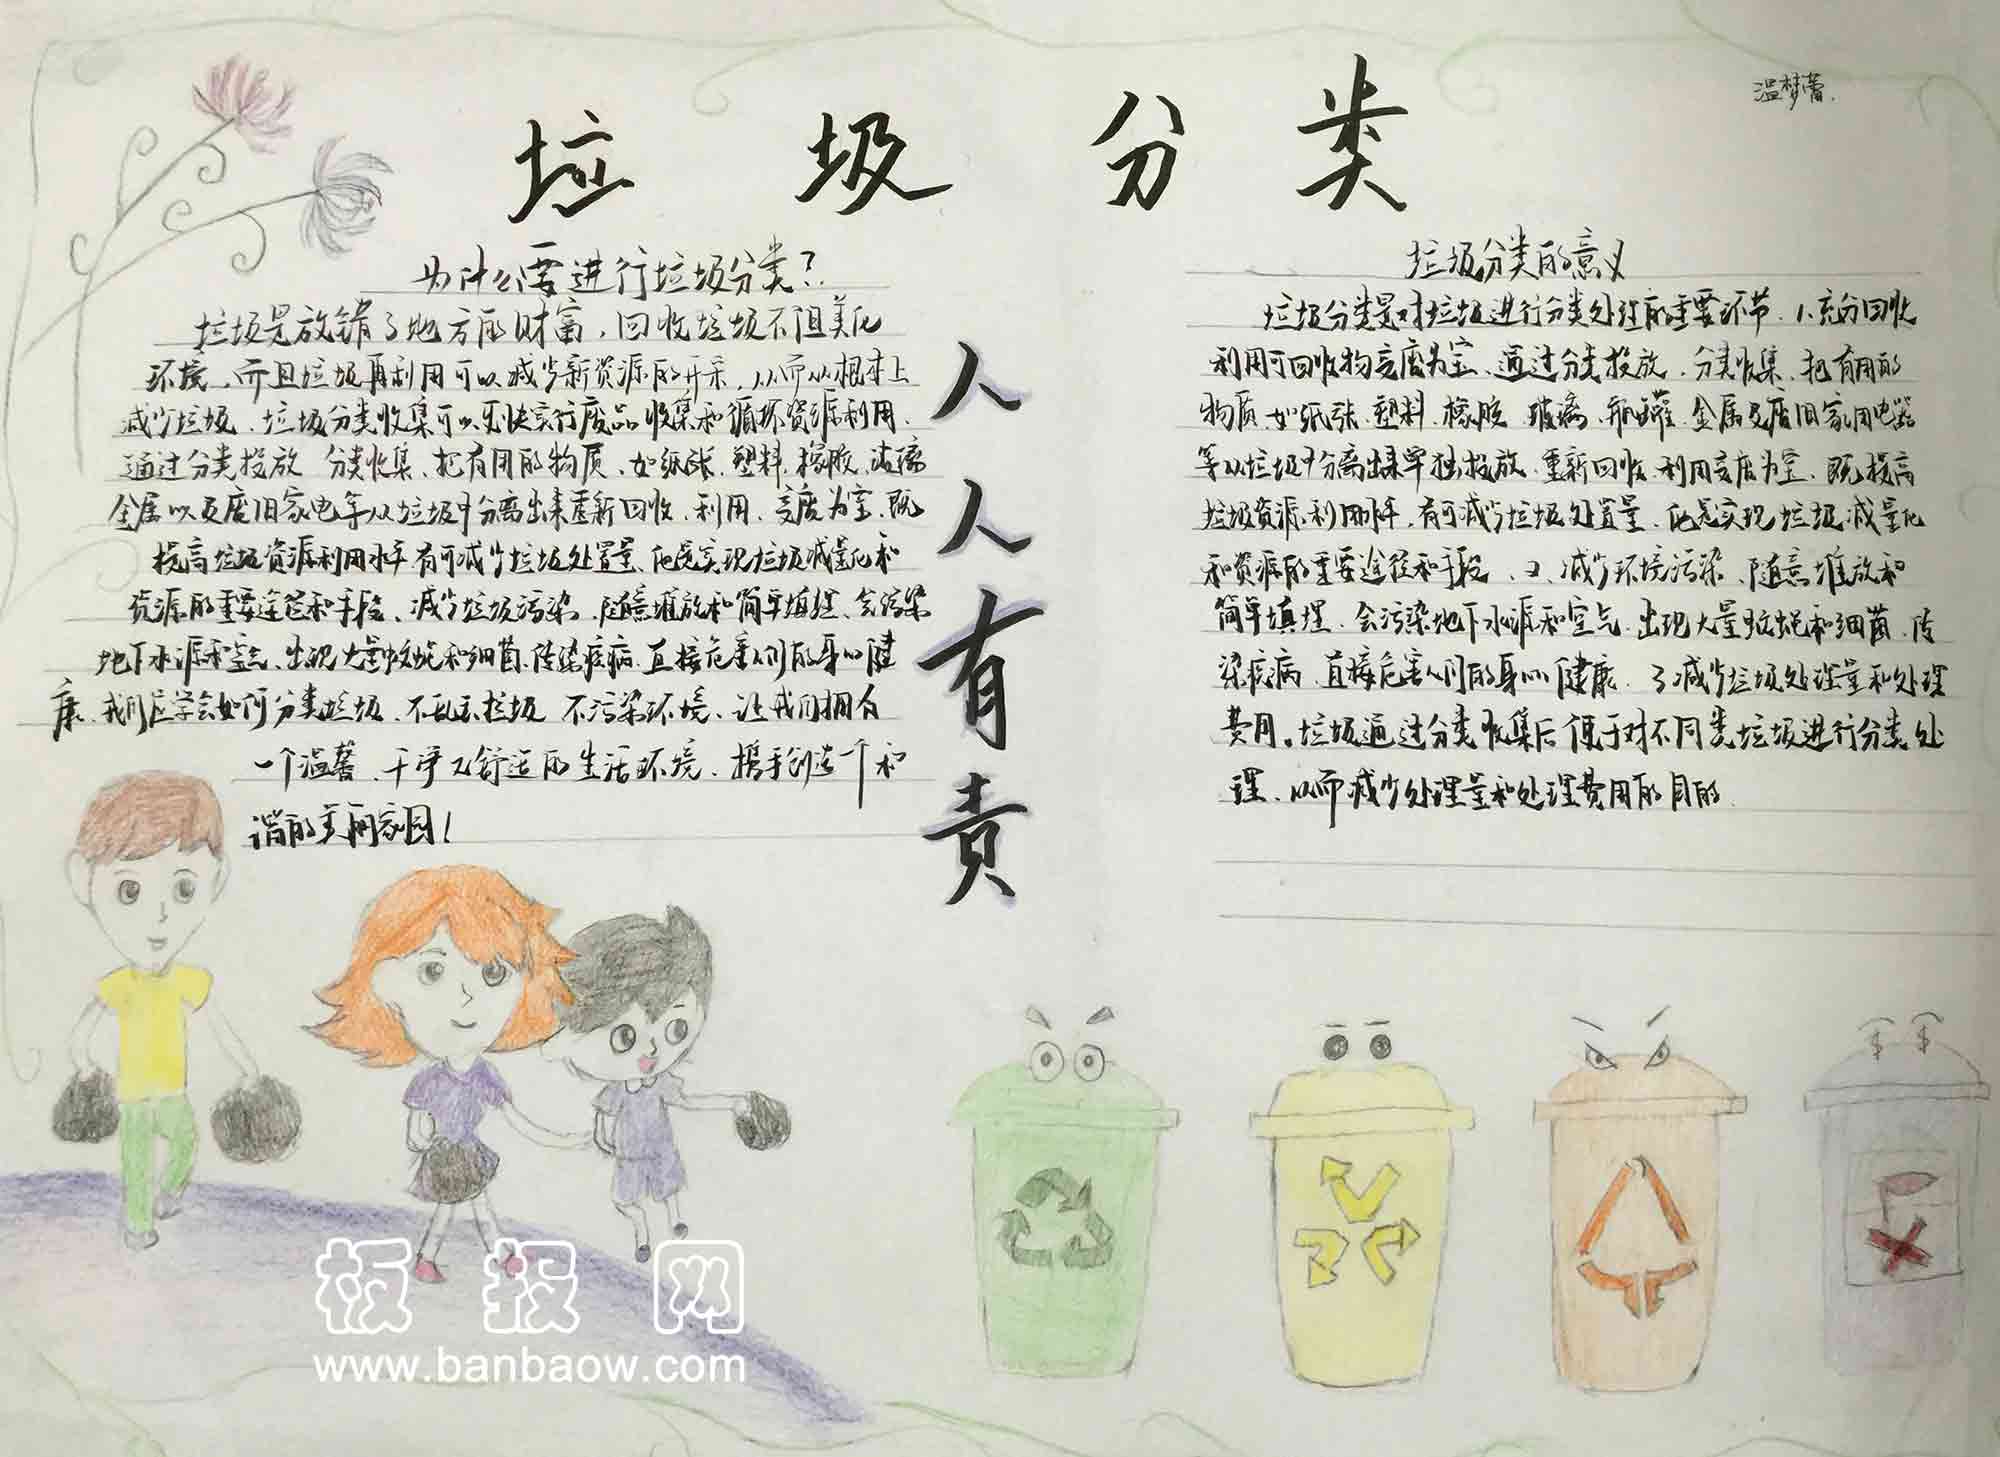 垃圾分类
温梦蕾.
人人有责
为什么要进行垃圾分类?
垃圾是放错了地方的财富,回收垃圾不但美化
环境,而且垃圾再利用可以减少新资源的开采,从而从根本上
减少垃圾、垃圾分类收集可以更快实行废品收集和循环资源利用、
通过分类投放 分类收集、把有用的物质、如纸张、塑料、橡胶、玻璃
金属以及废旧家电等从垃圾中分离出来重新回收、利用、变废为宝、既
提高垃圾资源利用水平有可减少垃圾处置量、他是实现垃圾减量化和
资源的重要途径和手段、减少垃圾污染、随意堆放和简单填埋、会污染
地下水源和空气、出现大量蚊蝇和细菌、传染疾病、直接危害人们的身心健
康、我们应学会如何分类垃圾、不乱丢垃圾 不污染环境、让我们拥有
一个温馨、干净又舒适的生活环境、携手创造一个和
谐的美丽家园!
垃圾分类的意义
垃圾分类是对垃圾进行分类处理的重要环节、1、充分回收
利用可回收物变废为宝、通过分类投放、分类收集、把有用的
物质 如纸张、塑料、橡胶 玻璃、瓶罐、金属及废旧家用电器
等从垃圾中分离出来单独投放、重新回收、利用变废为宝、既提高
垃圾资源利用水平,有可减少垃圾处置量、他是实现垃圾减量化
和资源的重要途径和手段、2、减少环境污染、随意堆放和
简单填埋、会污染地下水源和空气、出现大量蚊蝇和细菌、传
染疾病、直接危害人们的身心健康、3 减少垃圾处理量和处理
费用。垃圾通过分类收集后便于对不同类垃圾进行分类处
理、从而减少处理量和处理费用的目的.
板报网
www.banbaow.com